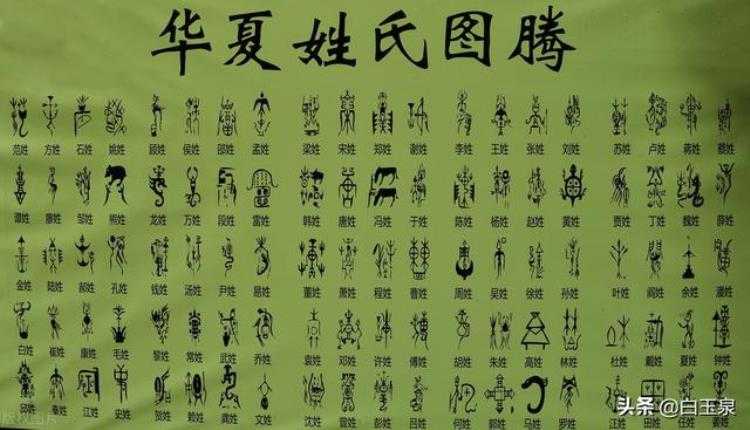 华夏姓氏图腾
范姓 方姓 石姓 姚姓 顾姓 侯姓 邵姓 孟姓 梁姓 宋姓 郑姓 谢姓 李姓 王姓 张姓 刘姓 苏姓 卢姓 蒋姓 蔡姓
谭姓 廖姓 邹姓 熊姓 龙姓 万姓 段姓 雷姓 韩姓 唐姓 冯姓 于姓 陈姓 杨姓 赵姓 黄姓 贾姓 丁姓 魏姓 薛姓
金姓 陆姓 郝姓 孔姓 钱姓 汤姓 尹姓 易姓 董姓 萧姓 程姓 曹姓 周姓 吴姓 徐姓 孙姓 叶姓 阎姓 余姓 潘姓
白姓 崔姓 康姓 毛姓 黎姓 常姓 武姓 乔姓 袁姓 邓姓 许姓 傅姓 胡姓 朱姓 高姓 林姓 杜姓 戴姓 夏姓 钟姓
邱姓 秦姓 江姓 史姓 贺姓 赖姓 龚姓 文姓 沈姓 曾姓 彭姓 吕姓 何姓 郭姓 马姓 罗姓
头条 @白玉泉